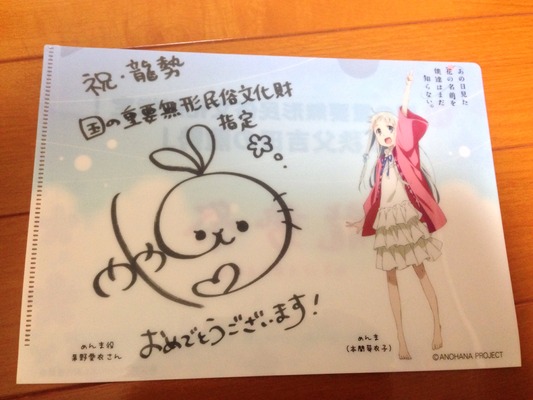 祝・龍勢
国の重要無形民俗文化財
指定
おめでとうございます!
めんま役
茅野愛衣さん
あの日見た
花の名前を
僕達はまだ
知らない。
めんま
(本間芽衣子)
©ANOHANA PROJECT